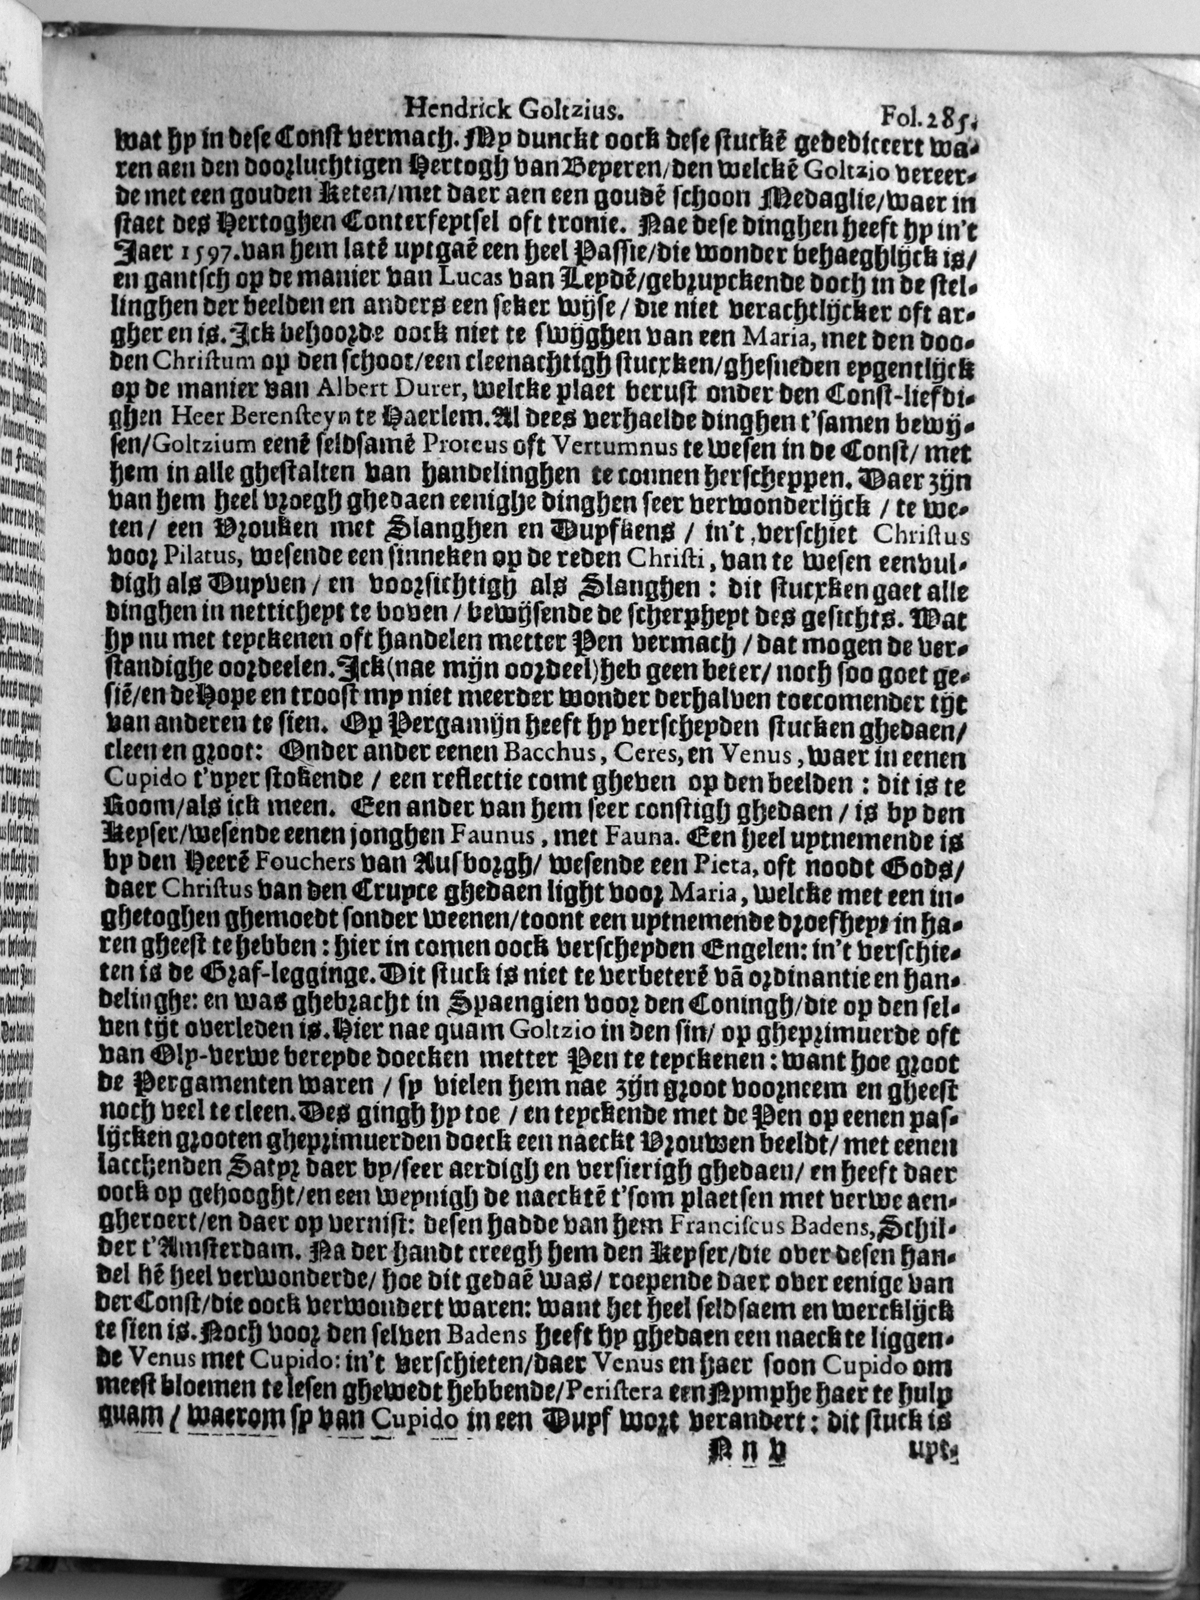 Hendrick Goltzius.
Fol. 285.
wat hy in dese Const vermach. My dunckt oock dese stuckē gededicceert wa-
ren aen den doorluchtigen Hertogh van Beyeren/den welckē Goltzio vereer-
de met een gouden Keten/met daer aen een goudē schoon Medaglie/waer in
staet des Hertoghen Conterfeytsel oft tronie. Nae dese dinghen heeft hy in't
Jaer 1597. van hem latē uytgaē een heel Passie/die wonder behaeghlijck is/
en gantsch op de manier van Lucas van Leydē/gebruyckende doch in de stel-
linghen der beelden en anders een seker wijse/die niet verachtlijcker oft ar-
gher en is. Ick behoorde oock niet te swijghen van een Maria, met den doo-
den Christum op den schoot/een cleenachtigh stucxken/ghesneden eygentlijck
op de manier van Albert Durer, welcke plaet berust onder den Const-liefdi-
ghen Heer Berensteyn te Haerlem. Al dees verhaelde dinghen t'samen bewij-
sen/Goltzium eenē seldsamē Proteus oft Vertumnus te wesen in de Const/met
hem in alle ghestalten van handelinghen te connen herscheppen. Daer zijn
van hem heel vroegh ghedaen eenighe dinghen seer verwonderlijck/te we-
ten/een Vrouken met Slanghen en Duyfkens/in't verschiet Christus
voor Pilatus, wesende een sinneken op de reden Christi, van te wesen eenvul-
digh als Duyven/en voorsichtigh als Slanghen: dit stucxken gaet alle
dinghen in netticheyt te boven/bewijsende de scherpheyt des gesichts. Wat
hy nu met teyckenen oft handelen metter Pen vermach/dat mogen de ver-
standighe oordeelen. Ick (nae mijn oordeel) heb geen beter/noch soo goet ge-
siē/en de Hope en troost my niet meerder wonder derhalven toecomender tijt
van anderen te sien. Op Pergamijn heeft hy verscheyden stucken ghedaen/
cleen en groot: Onder ander eenen Bacchus, Ceres, en Venus, waer in eenen
Cupido t'vyer stokende/een reflectie comt gheven op den beelden: dit is te
Room/als ick meen. Een ander van hem seer constigh ghedaen/is by den
Keyser/wesende eenen jonghen Faunus, met Fauna. Een heel uytnemende is
by den Heerē Fouchers van Ausborgh/wesende een Pieta, oft noodt Gods/
daer Christus van den Cruyce ghedaen light voor Maria, welcke met een in-
ghetoghen ghemoedt sonder weenen/toont een uytnemende droefheyt in ha-
ren gheest te hebben: hier in comen oock verscheyden Engelen: in't verschie-
ten is de Graf-legginge. Dit stuck is niet te verbeterē vā ordinantie en han-
delinghe: en was ghebracht in Spaengien voor den Coningh/die op den sel-
ven tijt overleden is. Hier nae quam Goltzio in den sin/op gheprimuerde oft
van Oly-verwe bereyde doecken metter Pen te teyckenen: want hoe groot
de Pergamenten waren/sy vielen hem nae zijn groot voorneem en gheest
noch veel te cleen. Des gingh hy toe/en teyckende met de Pen op eenen pas-
lijcken grooten gheprimuerden doeck een naeckt Vrouwen beeldt/met eenen
lacchenden Satyr daer by/seer aerdigh en versierigh ghedaen/en heeft daer
oock op gehooght/en een weynigh de naecktē t'som plaetsen met verwe aen-
gheroert/en daer op vernist: desen hadde van hem Franciscus Badens, Schil-
der t'Amsterdam. Na der handt creegh hem den Keyser/die over desen han-
del hē heel verwonderde/hoe dit gedaē was/roepende daer over eenige van
der Const/die oock verwondert waren: want het heel seldsaem en wercklijck
te sien is. Noch voor den selven Badens heeft hy ghedaen een naeckte liggen-
de Venus met Cupido: in't verschieten/daer Venus en haer soon Cupido om
meest bloemen te lesen ghewedt hebbende/Peristera een Nymphe haer te hulp
quam/waerom sy van Cupido in een Duyf wort verandert: dit stuck is
N n v
uyt-